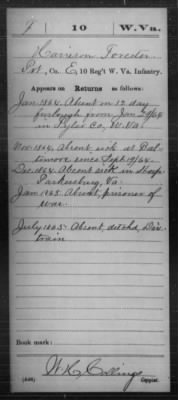 F 10 W.Va.
Harrison Forester
Pvt., Co. E, 10 Reg't W. Va. Infantry.
Appears on Returns as follows:
Jan 1864, Absent on 12 day
furlough from Jan 29/64
in Tyler Co, W. Va
Nov. 1864, Absent, sick at Bal-
timore since Sept. 19/64.
Dec 1864 Absent sick in Hosp.
Parkersburg, Va.
Jan 1865 Absent, prisoner of
war.
July 1865 Absent, detchd, Div.
train
Book mark:
W. H. Collings
(546) Copyist.